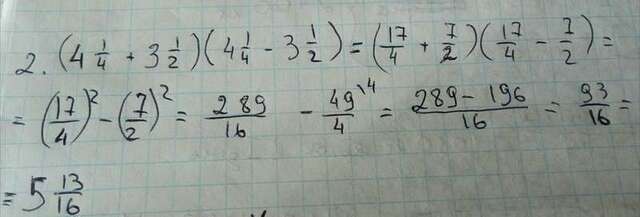 2. (4 1/4 + 3 1/2)(4 1/4 - 3 1/2) = (17/4 + 7/2)(17/4 - 7/2) =
= (17/4)² - (7/2)² = 289/16 - 49\4/4 = 289-196/16 = 93/16 =
= 5 13/16